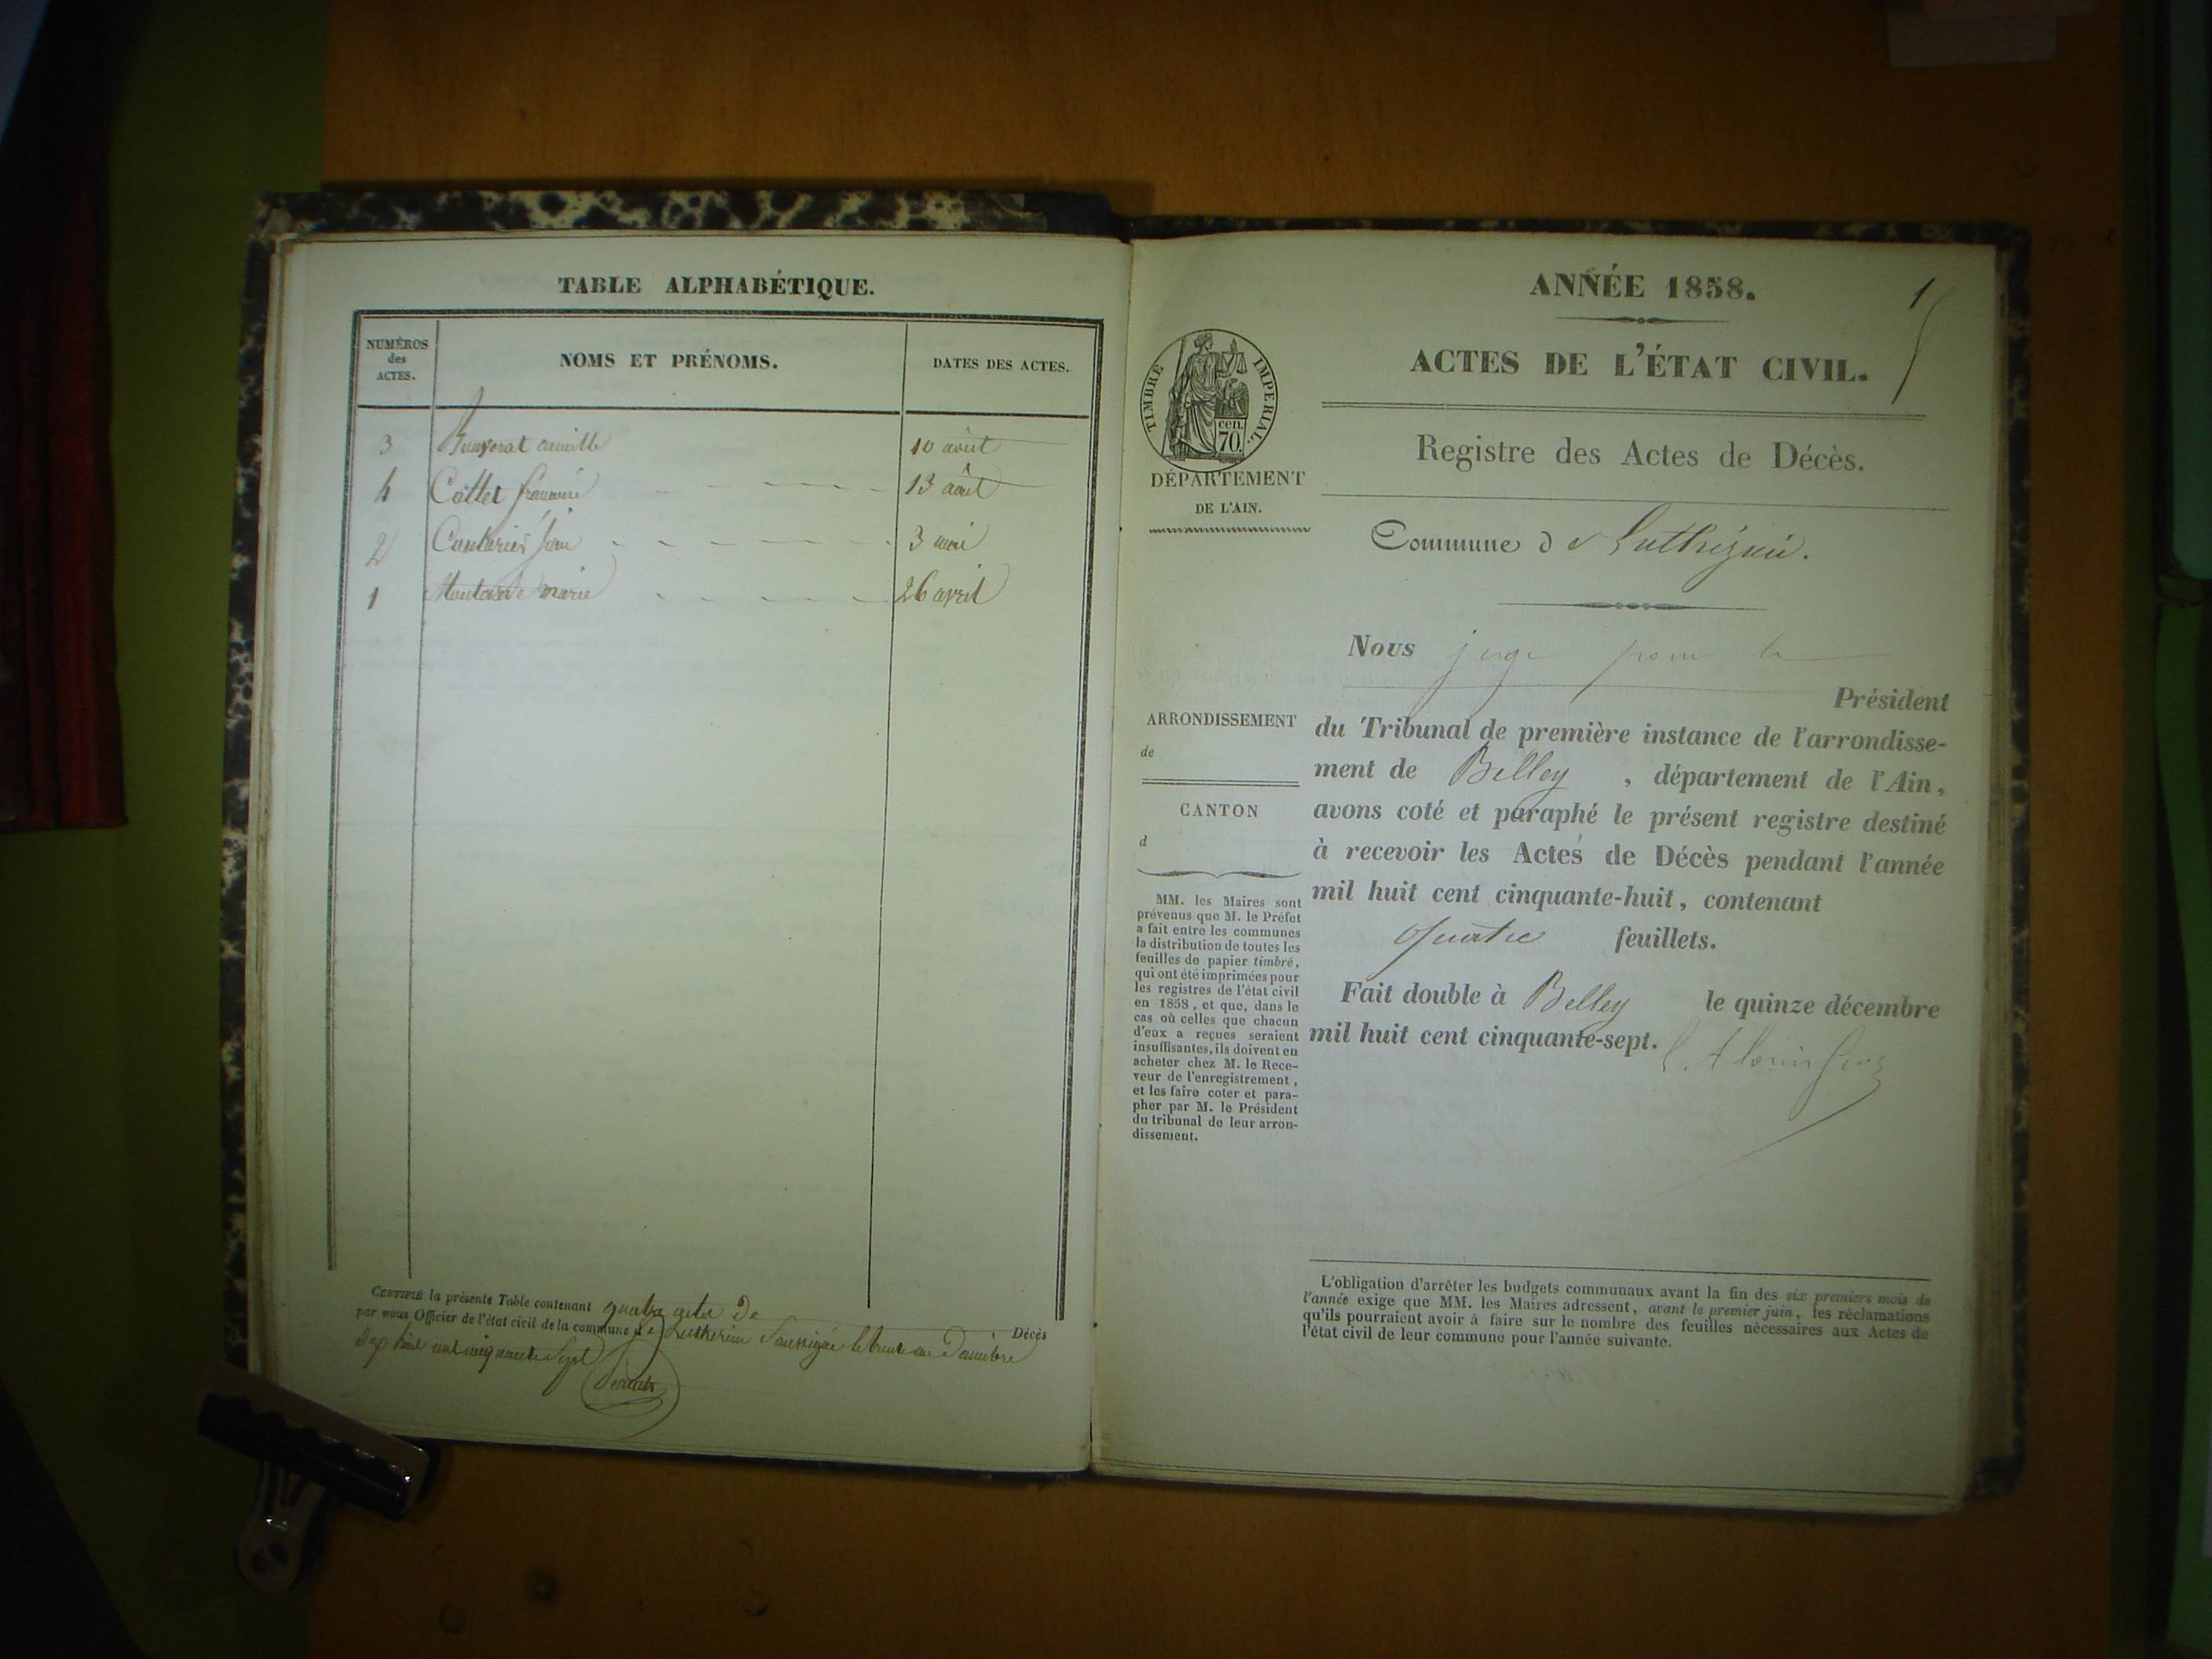 TABLE ALPHABÉTIQUE.
NUMÉROS
des
ACTES.
NOMS ET PRÉNOMS.
DATES DES ACTES.
3 camille 10 août
4 Collet 13 août
2 Jean 3 mai
1 marie 26 avril
CERTIFIÉ la présente Table contenant quatre actes de
Décès
par nous Officier de l'état civil de la commune de le trente
ANNÉE 1858.
1
ACTES DE L'ÉTAT CIVIL.
TIMBRE IMPERIAL.
cen.
70.
DÉPARTEMENT
DE L'AIN.
Registre des Actes de Décès.
Commune de Luthézieu.
Nous juge pour le
Président
du Tribunal de première instance de l'arrondisse-
ment de Belley , département de l'Ain,
avons coté et paraphé le présent registre destiné
à recevoir les Actes de Décès pendant l'année
mil huit cent cinquante-huit, contenant
quatre feuillets.
Fait double à Belley le quinze décembre
mil huit cent cinquante-sept.
ARRONDISSEMENT
de
CANTON
d
MM. les Maires sont
prévenus que M. le Préfet
a fait entre les communes
la distribution de toutes les
feuilles de papier timbré,
qui ont été imprimées pour
les registres de l'état civil
en 1858, et que, dans le
cas où celles que chacun
d'eux a reçues seraient
insuffisantes, ils doivent en
acheter chez M. le Rece-
veur de l'enregistrement,
et les faire coter et para-
pher par M. le Président
du tribunal de leur arron-
dissement.
L'obligation d'arrêter les budgets communaux avant la fin des six premiers mois de
l'année exige que MM. les Maires adressent, avant le premier juin, les réclamations
qu'ils pourraient avoir à faire sur le nombre des feuilles nécessaires aux Actes de
l'état civil de leur commune pour l'année suivante.